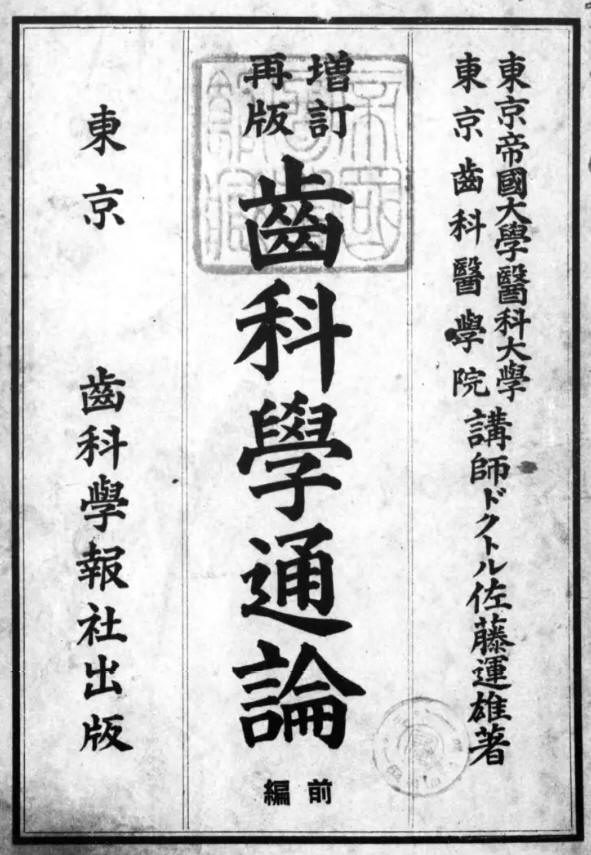 東京帝國大學醫科大學
東京齒科醫學院
講師ドクトル佐藤運雄著
増訂
再版
齒科學通論
前編
東京 齒科學報社出版